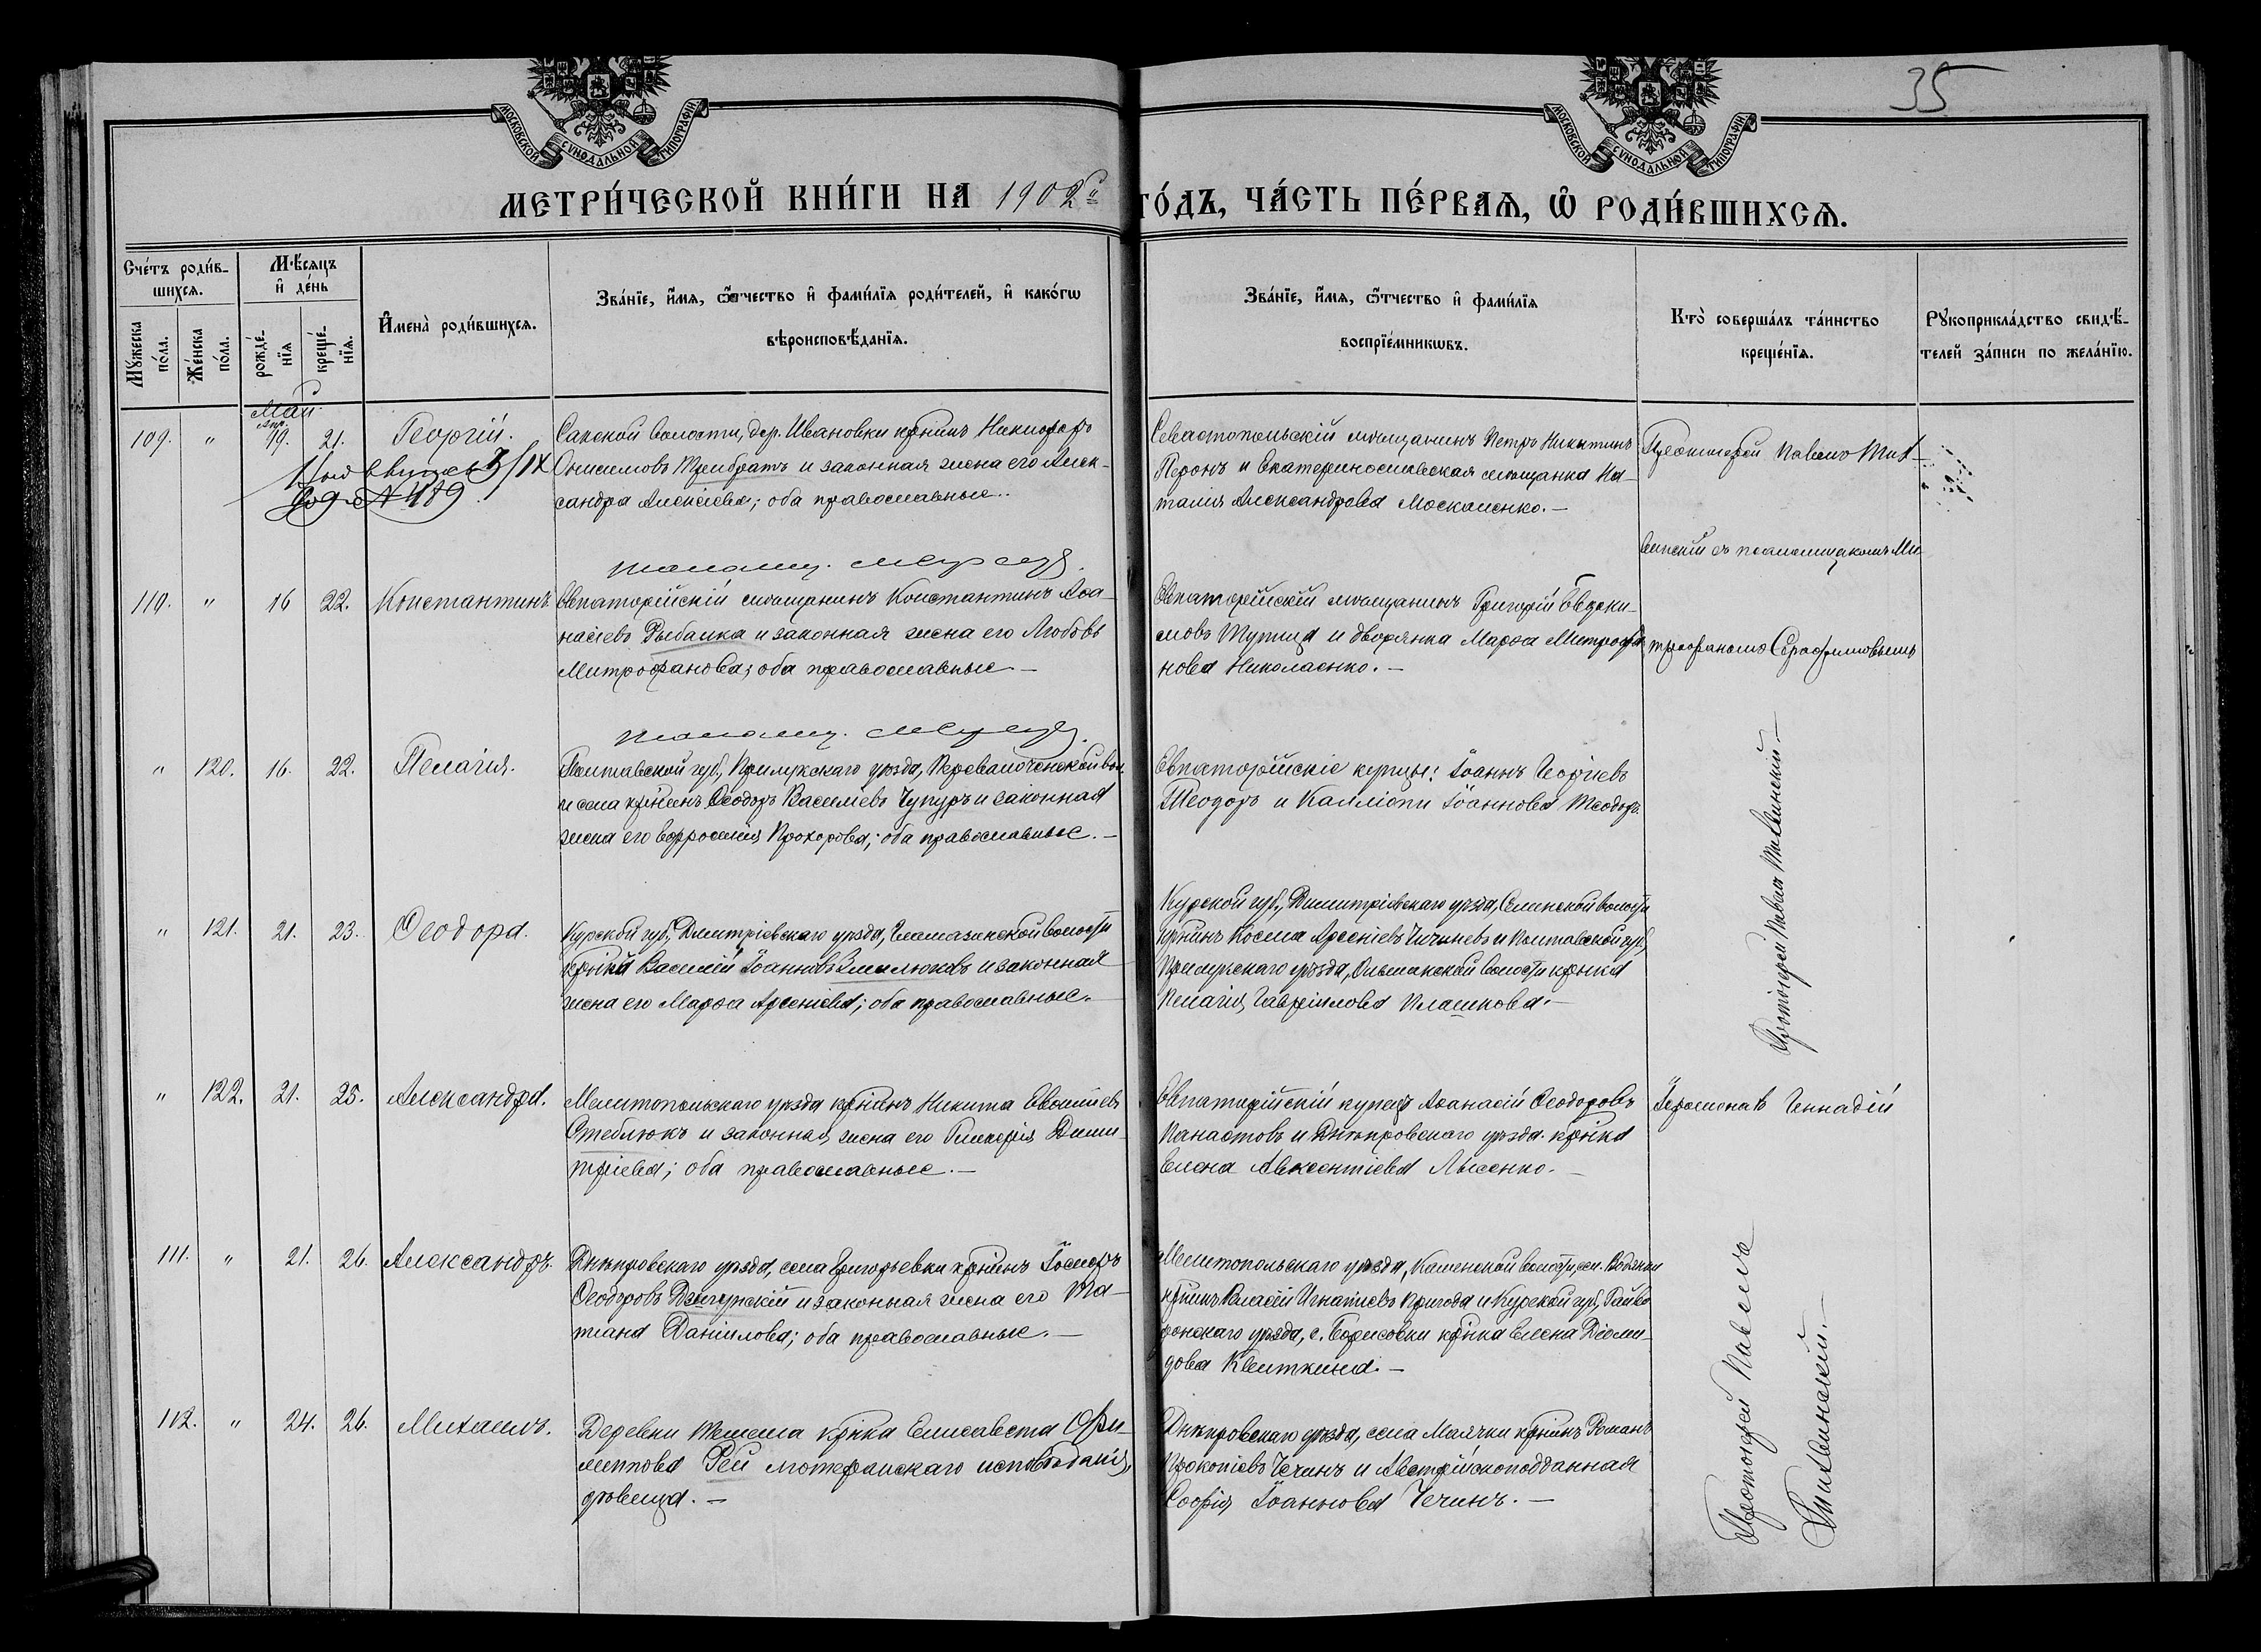 35
МОСКОВСКОЙ СѴНОДАЛЬНОЙ ТИПОГРАФІИ
МОСКОВСКОЙ СѴНОДАЛЬНОЙ ТИПОГРАФІИ
МЕТРИ́ЧЕСКОЙ КНИ́ГИ НА 1902й ГО́ДЪ, ЧА́СТЬ ПЕ́РВАѦ, Ѡ҆ РОДИ́ВШИХСѦ.
Сче́тъ роди́в-
шихсѧ.
Мꙋ́жеска
по́ла.
Же́нска
по́ла.
Мѣ́сѧцъ
и҆ де́нь
рожде́-
нїѧ
креще́-
нїѧ.
И҆мена̀ роди́вшихсѧ.
Зва́нїе, и҆́мѧ, ѻ҆́тчество и҆ фами́лїѧ роди́телей, и҆ како́гѡ
вѣроисповѣ́данїѧ.
Зва́нїе, и҆́мѧ, ѻ҆́тчество и҆ фами́лїѧ
воспрїе́мникѡвъ.
Кто̀ соверша́лъ та́инство
креще́нїѧ.
Рꙋкоприкла́дство свидѣ́-
телей за́писи по жела́нїю.
Май
109. " 19. 21. Георгій.
Сакской волости, дер. Ивановки крнинъ Никифоръ
Онисимовъ Трибратъ и законная жена его Алек-
сандра Алексіева; оба православные.
Севастопольскій мѣщанинъ Петръ Никитинъ
Перонъ и Екатеринославская мѣщанка На-
талія Александрова Москаленко.—
Протоіерей Павелъ Тих-
3/IX
№ 489
110. " 16 22. Константинъ
Евпаторійскій мѣщанинъ Константинъ Аѳа-
насіевъ Рыбалка и законная жена его Любовь
Митрофанова; оба православные.—
Евпаторійскій мѣщанинъ Григорій Евдоки-
мовъ и дворянка Марѳа Митрофа-
нова Николаенко.—
винскій съ псаломщикомъ Ми-
трофаномъ Серафимовымъ
" 120. 16. 22. Пелагія.
Полтавской губ., Прилукскаго уѣзда, Переволоченской вол.
и села крнинъ Ѳеодоръ Василіевъ Чупуръ и законная
жена его Евфросинія Прохорова; оба православные.—
Евпаторійскіе купцы: Іоаннъ Георгіевъ
Теодоръ и Каллісти Іоаннова Теодоръ.
Протоіерей Павелъ Тихвинскій.—
" 121. 21. 23. Ѳеодора.
Курской губ., Димитріевскаго уѣзда, волости
крнинъ Василій Іоанновъ и законная
жена его Марѳа Арсеніева; оба православные.—
Курской губ., Димитріевскаго уѣзда, волости
крнинъ Косма Арсеніевъ и Полтавской губ.,
Прилукскаго уѣзда, волости крнка
Пелагія Гавріилова Плашкова.—
" 122. 21. 25. Александра.
Мелитопольскаго уѣзда крнинъ Никита
Стеблюкъ и законная жена его Гликерія Дими-
тріева; оба православные.—
Евпаторійскій купецъ Аѳанасій Ѳеодоровъ
Панастовъ и Днѣпровскаго уѣзда крнка
Елена Авксентіева Лысенко.—
Іеромонахъ Геннадій
111. " 21. 26. Александръ.
Днѣпровскаго уѣзда, села Григорьевки крнинъ Іосифъ
Ѳеодоровъ и законная жена его Та-
тіана Даніилова; оба православные.—
Мелитопольскаго уѣзда, Каменской волости, сел. Водяной
крнинъ Власій Игнатіевъ Пригода и Курской губ., Грайво-
ронскаго уѣзда, с. Борисовки крнка Елена Діоми-
дова Квиткина.—
Протоіерей Павелъ
Тихвинскій.—
112. " 24. 26. Михаилъ.
Деревни Тешела крнка Елисавета Фи-
липпова Рей лютеранскаго исповѣданія,
дѣвица.—
Днѣпровскаго уѣзда, села Маячки крнинъ Романъ
Прокопіевъ Чечинъ и Австрійскоподданная
Софія Іоаннова Чечинъ.—